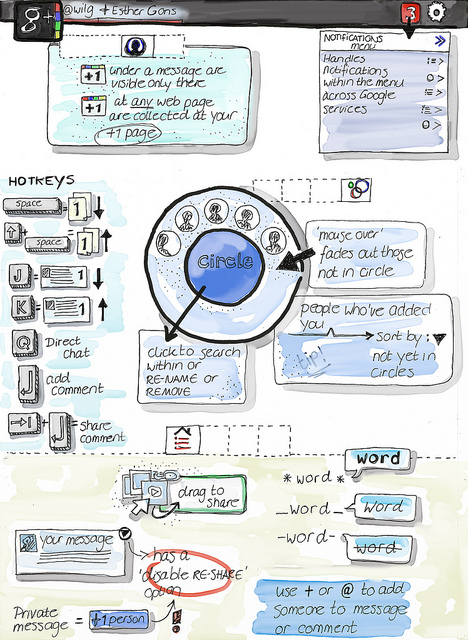 g+
@wilg + Esther Gons
3
+1 under a message are
visible only there
+1 at any web page
are collected at your
+1 page
NOTIFICATIONS
menu
Handles
notifications
within the menu
across Google
services
HOTKEYS
space = 1
+ space = 1
J = 1
K = 1
Q Direct
chat
add
comment
+ = share
comment
Circle
'mouse over'
fades out those
not in circle
people who've added
you → sort by:
not yet in
circles
tip!
click to search
within or
RE-NAME or
REMOVE
drag to
share
*word* word
_word_ word
-word- word
your message
has a
'disable RE-SHARE'
option
Private
message = +1 person !
use + or @ to add
someone to message
or comment